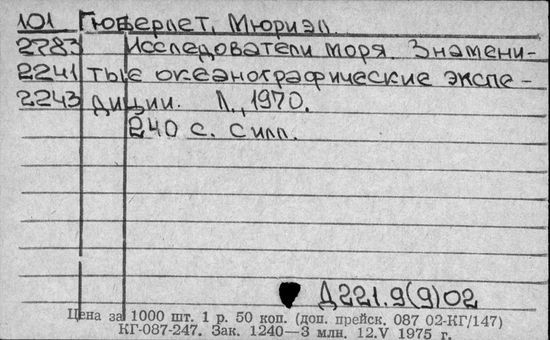 101 Гюберлет, Мюриэл.
2783 Исследователи моря. Знамени-
2241 тые океанографические экспе-
2243 диции. Л., 1970.
240 с. с илл.
Д221.9(9)02
Цена за 1000 шт. 1 р. 50 коп. (доп. прейск. 087 02-КГ/147)
КГ-087-247. Зак. 1240—3 млн. 12.V 1975 г.